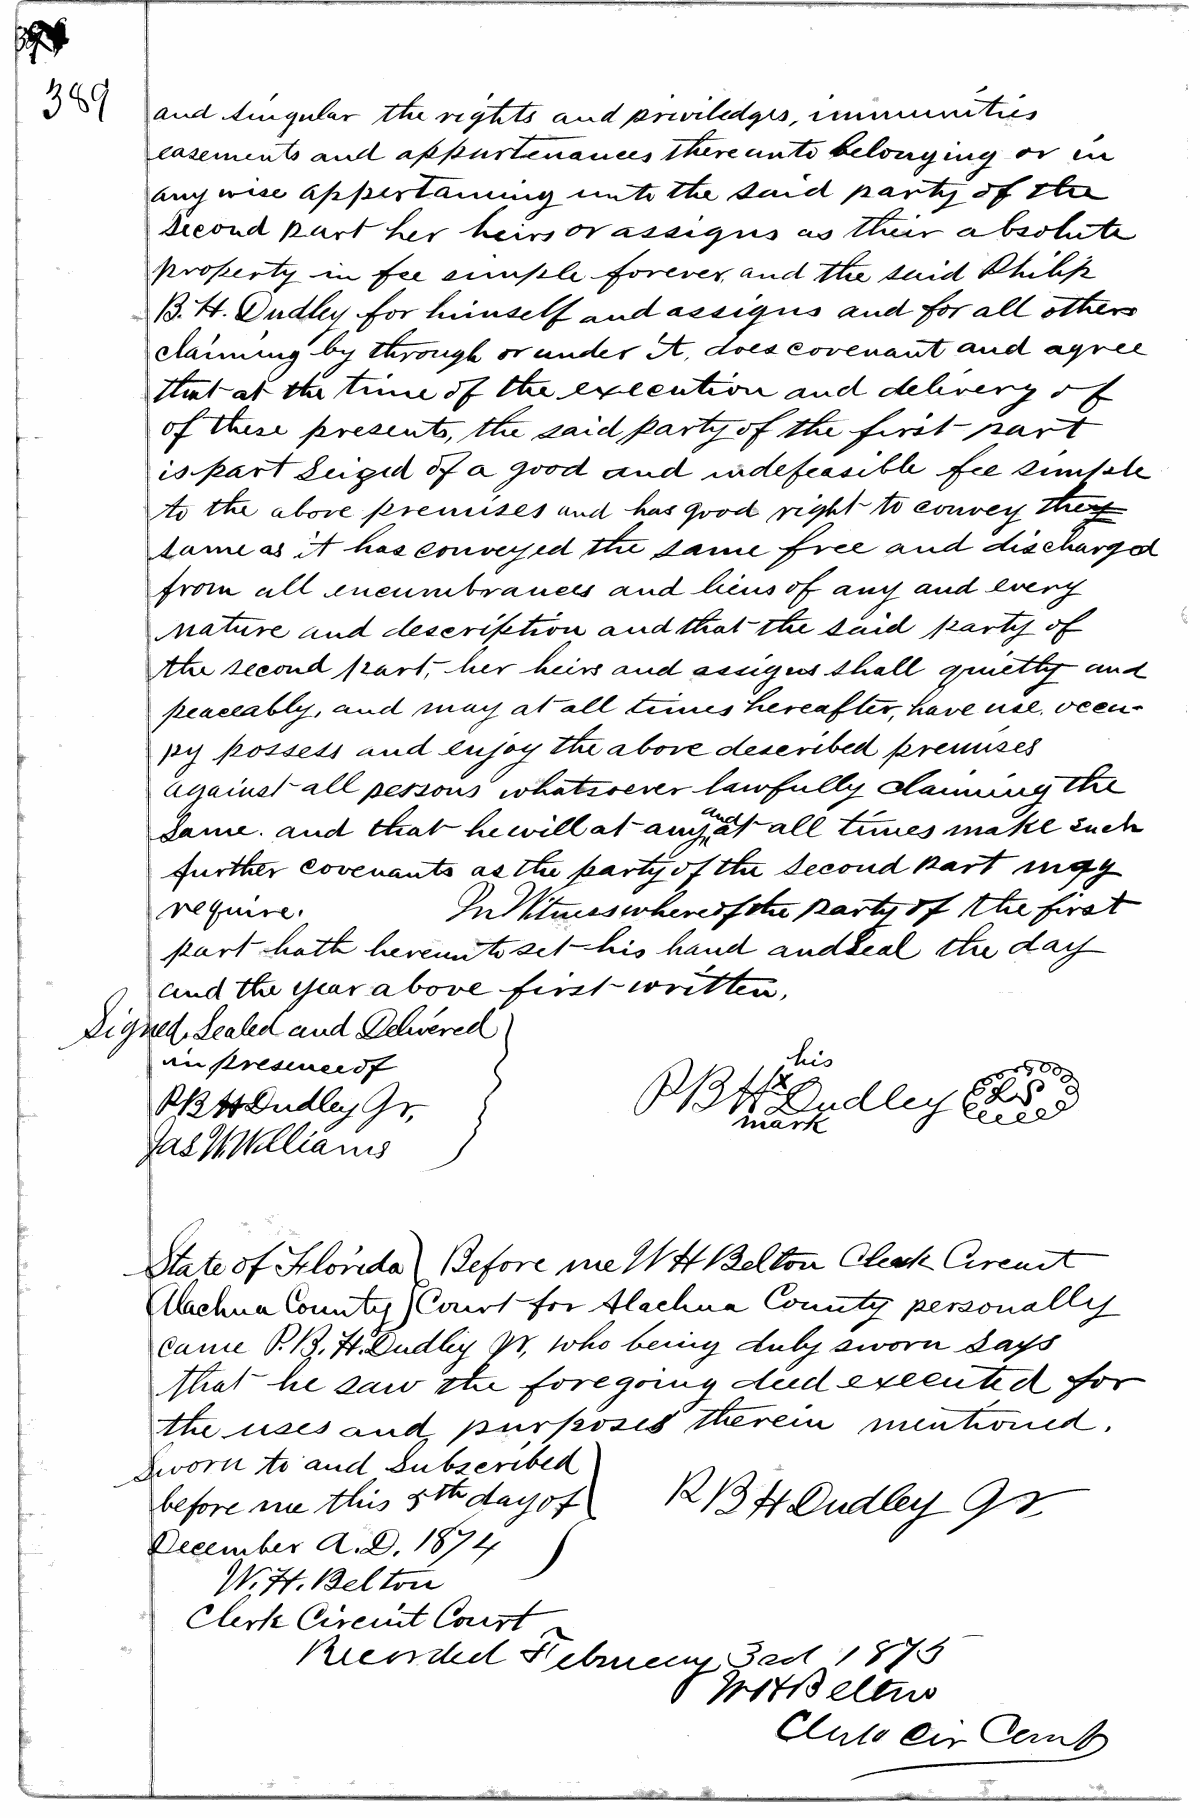 389
and singular the rights and priviledges, immunities
easements and appurtenances thereunto belonging or in
any wise appertaining unto the said party of the
second part her heirs or assigns as their absolute
property in fee simple forever, and the said Philip
B. H. Dudley for himself and assigns and for all others
claiming by through or under it, does covenant and agree
that at the time of the execution and delivery of
of these presents, the said party of the first part
is part seized of a good and indefeasible fee simple
to the above premises and has good right to convey the
same as it has conveyed the same free and discharged
from all encumbrances and liens of any and every
nature and description and that the said party of
the second part, her heirs and assigns shall quietly and
peaceably, and may at all times hereafter, have use, occu-
py possess and enjoy the above described premises
against all persons whatsoever lawfully claiming the
same. and that he will at any and at all times make such
further covenants as the party of the second part may
require. In Witness whereof the party of the first
part hath hereunto set his hand and seal the day
and the year above first written.
Signed, Sealed and Delivered
in presence of
P B H Dudley Jr,
Jas W. Williams
his
P B H x Dudley LS
mark
State of Florida Before me W H Belton Clerk Circuit
Alachua County Court for Alachua County personally
came P. B. H. Dudley Jr, who being duly sworn says
that he saw the foregoing deed executed for
the uses and purposes therein mentioned.
Sworn to and Subscribed
before me this 5th day of
December A. D. 1874
P B H Dudley Jr
W. H. Belton
Clerk Circuit Court
Recorded February 3rd 1875
W H Belton
Clerk Cir Court